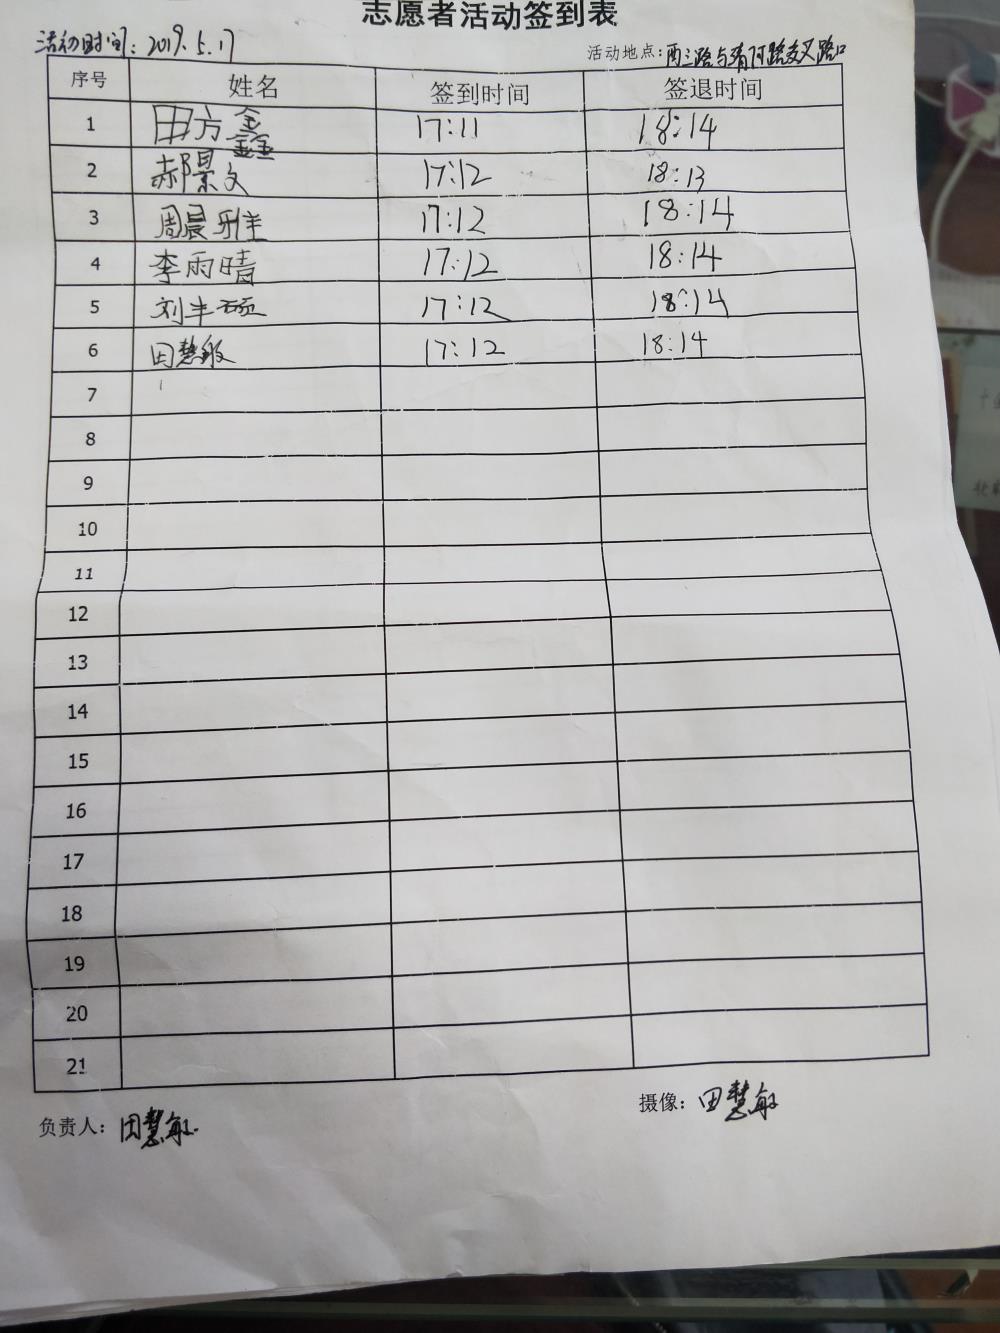 志愿者活动签到表
活动时间：2019.5.17
活动地点：西三路与清河路交叉路口
序号 姓名 签到时间 签退时间
1 田方鑫 17:11 18:14
2 郝景文 17:12 18:13
3 周晨 17:12 18:14
4 李雨晴 17:12 18:14
5 刘丰硕 17:12 18:14
6 田慧敏 17:12 18:14
7
8
9
10
11
12
13
14
15
16
17
18
19
20
21
负责人：田慧敏
摄像：田慧敏